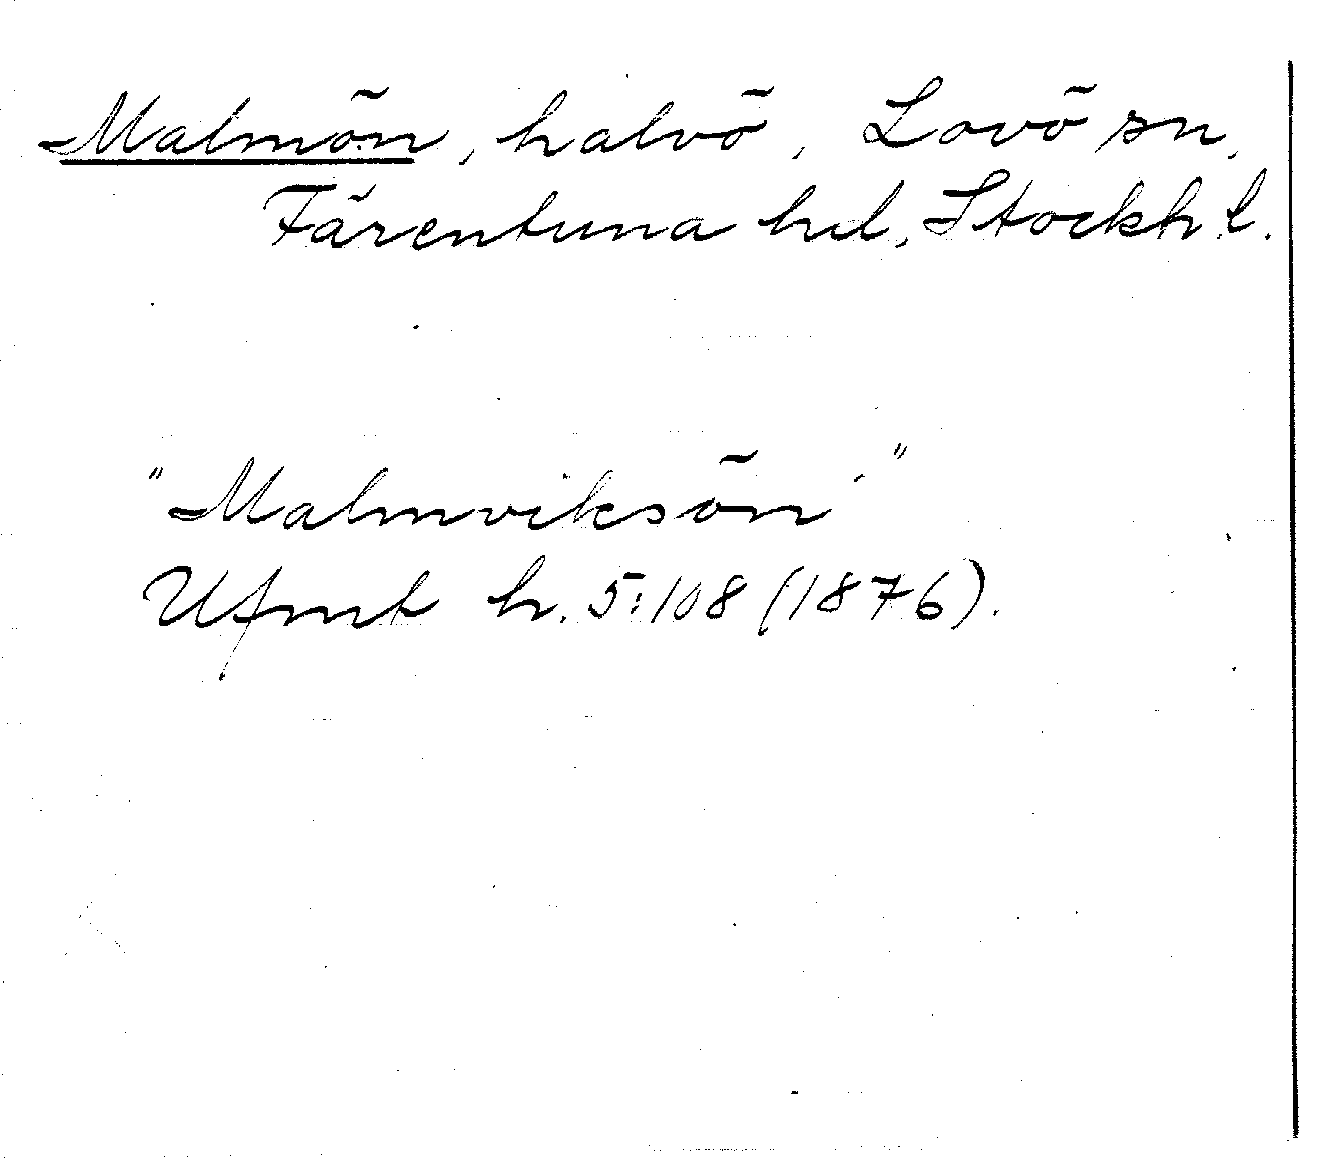 Malmön, halvö, Lovö sn,
Färentuna hd, Stockh.l.
"Malmviksön"
Ufmt h. 5:108 (1876).